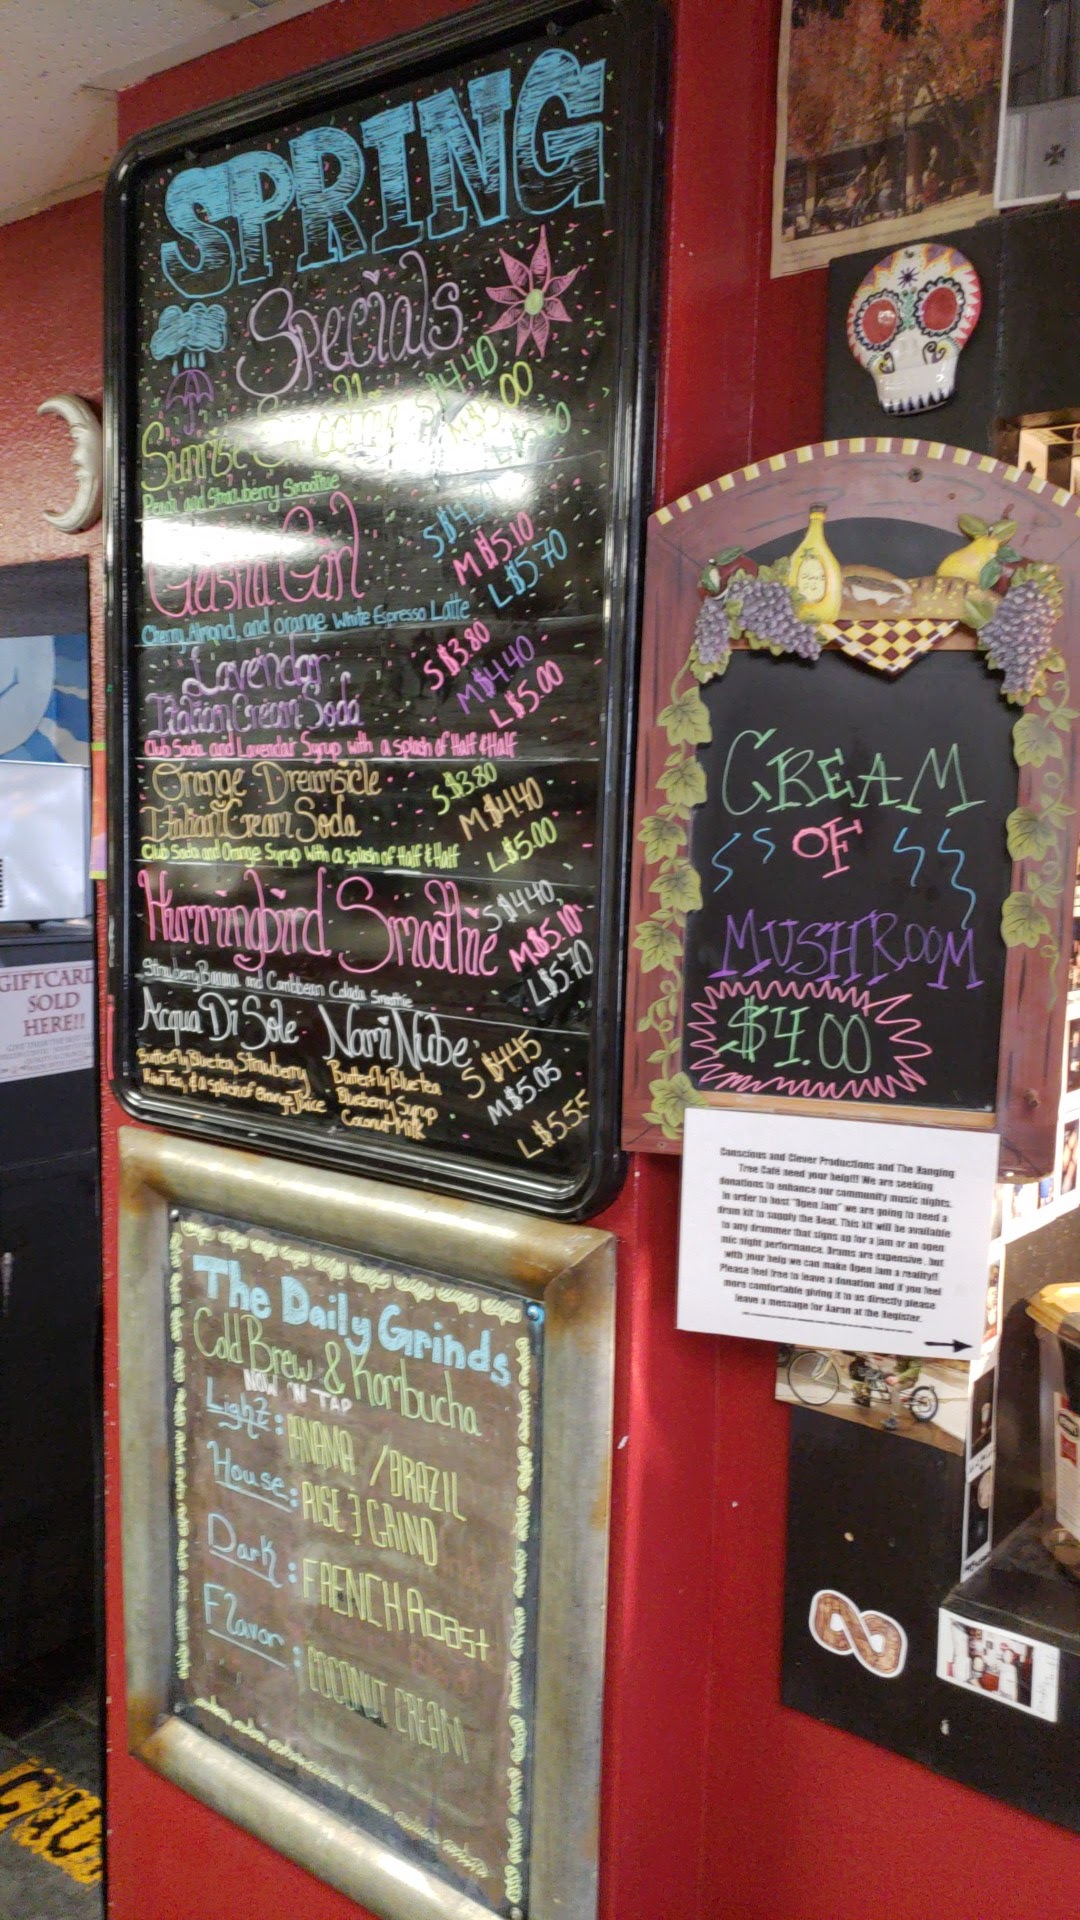 SPRING
Specials
Sunrise Smoothie $4.40
Peach and Strawberry Smoothie
Geisha Girl
M $5.10
L $5.70
Cherry, Almond, and orange White Espresso Latte
Lavendar
Italian Cream Soda
S $3.80
M $4.40
L $5.00
Club Soda and Lavendar Syrup with a splash of Half & Half
Orange Dreamsicle
Italian Cream Soda
S $3.80
M $4.40
L $5.00
Club Soda and Orange Syrup with a splash of Half & Half
Hummingbird Smoothie
S $4.40
M $5.10
L $5.70
Strawberry Banana and Caribbean Colada Smoothie
Acqua Di Sole
Butterfly Blue tea, Strawberry
Kiwi Tea, & a splash of Orange Juice
Nami Nube
Butterfly Blue tea
Blueberry Syrup
Coconut Milk
S $4.45
M $5.05
L $5.55
The Daily Grinds
Cold Brew & Kombucha
NOW ON TAP
Light: PANAMA / BRAZIL
House: RISE & GRIND
Dark: FRENCH Roast
Flavor: COCONUT CREAM
CREAM
OF
MUSHROOM
$4.00
Conscious and Clever Productions and The Hanging
Tree Café need your help!!! We are seeking
donations to enhance our community music nights.
In order to host "Open Jam" we are going to need a
drum kit to supply the Beat. This kit will be available
to any drummer that signs up for a jam or an open
mic night performance. Drums are expensive, but
with your help we can make Open Jam a reality!!
Please feel free to leave a donation and if you feel
more comfortable giving it to us directly please
leave a message for Aaron at the Register.
GIFTCARD
SOLD
HERE!!
CAU